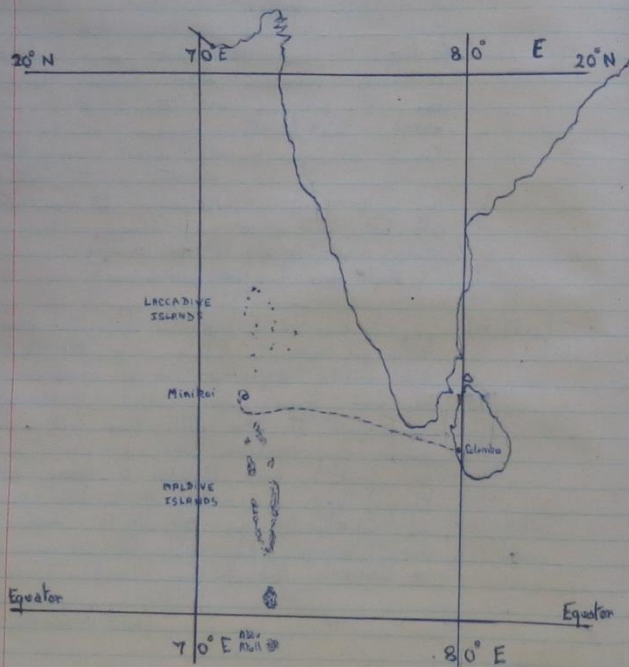 20° N
70° E
80°
E
20° N
LACCADIVE
ISLANDS
Minikoi
Colombo
MALDIVE
ISLANDS
Equator
Equator
70° E
Atoll
80° E